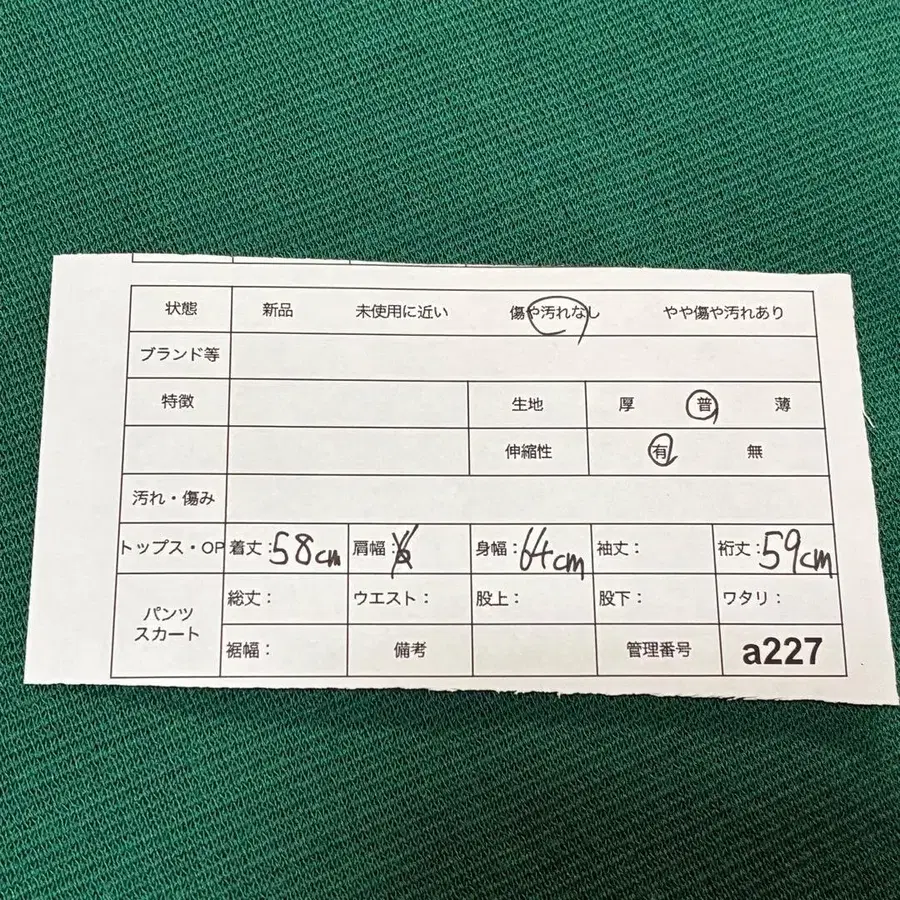 状態 新品 未使用に近い 傷や汚れなし やや傷や汚れあり
ブランド等
特徴 生地 厚 普 薄
伸縮性 有 無
汚れ・傷み
トップス・OP 着丈:58cm 肩幅: 身幅:64cm 袖丈: 裄丈:59cm
パンツ
スカート
総丈: ウエスト: 股上: 股下: ワタリ:
裾幅: 備考 管理番号 a227